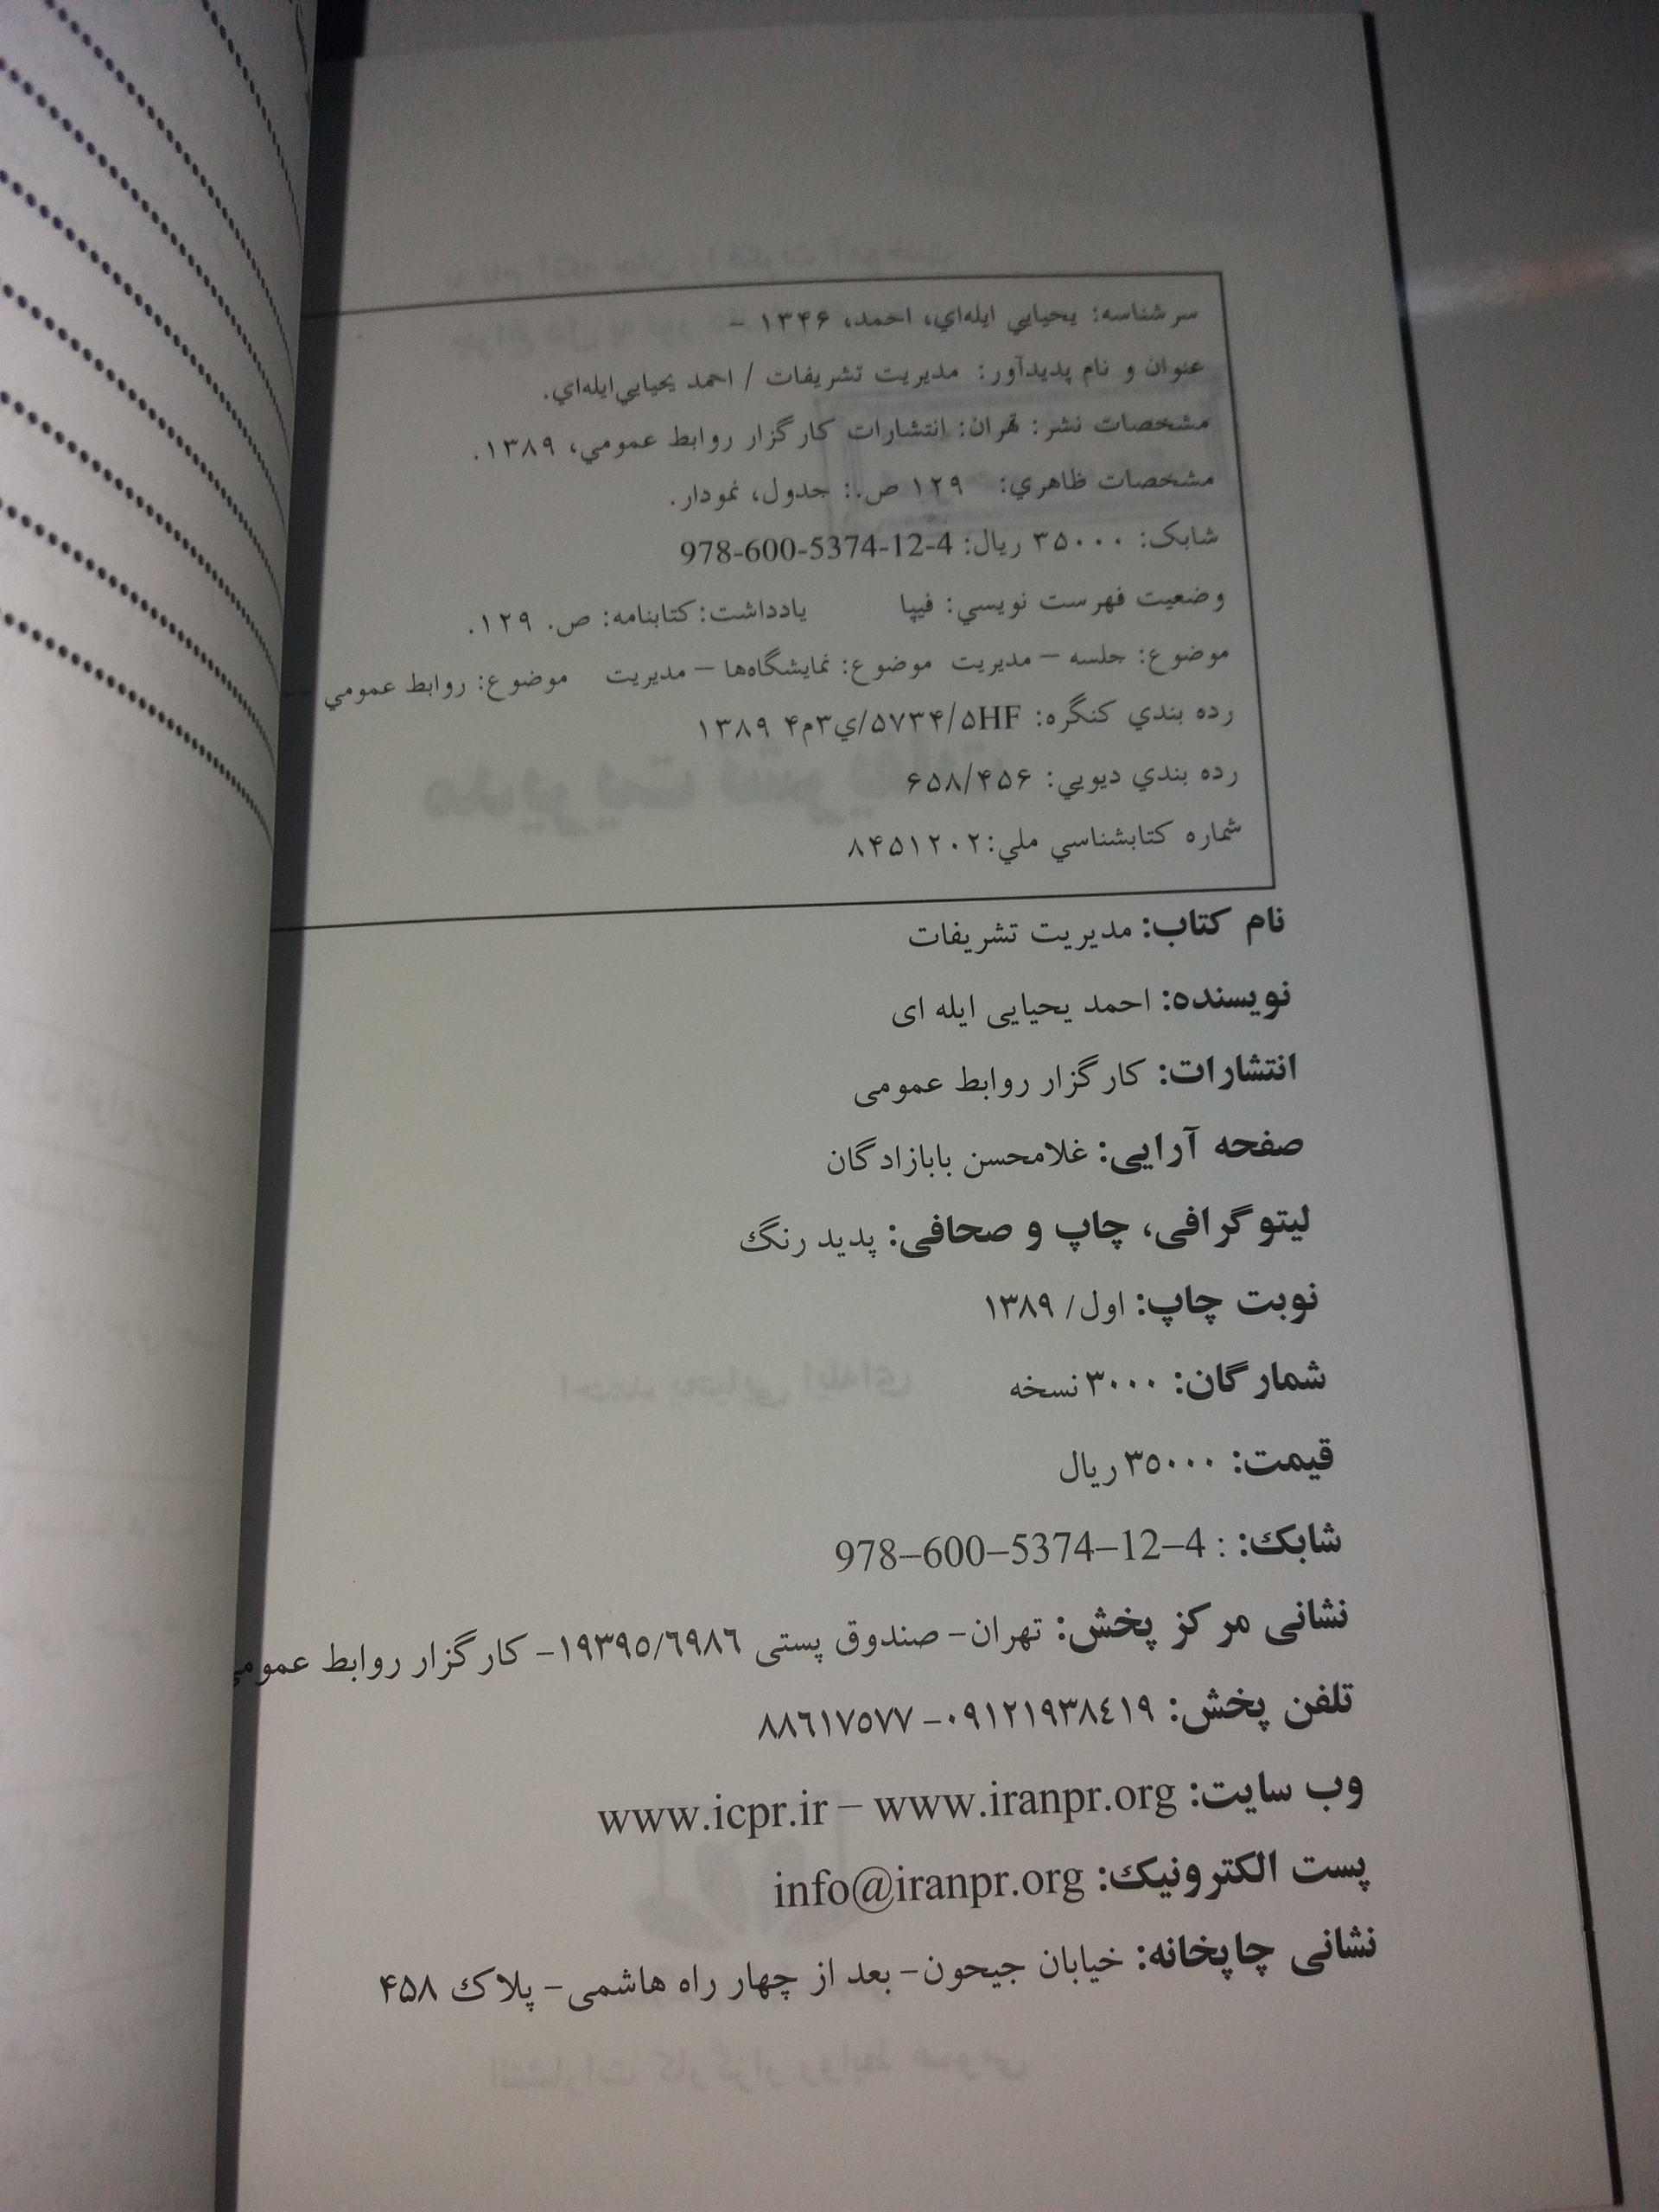 سرشناسه: يحيايي ايله‌اي، احمد، ۱۳۴۶ -
عنوان و نام پديدآور: مديريت تشريفات / احمد يحيايي‌ايله‌اي.
مشخصات نشر: تهران: انتشارات کارگزار روابط عمومي، ۱۳۸۹.
مشخصات ظاهري: ۱۲۹ ص.: جدول، نمودار.
شابک: ۳۵۰۰۰ ريال: 978-600-5374-12-4
وضعيت فهرست نويسي: فيپا یادداشت: کتابنامه: ص. ۱۲۹.
موضوع: جلسه – مديريت موضوع: نمايشگاه‌ها – مديريت موضوع: روابط عمومي –
رده بندي کنگره: ۵۷۳۴/۵HF/ي۳م۴ ۱۳۸۹
رده بندي ديويي: ۶۵۸/۴۵۶
شماره کتابشناسي ملي: ۸۴۵۱۲۰۲
نام کتاب: مدیریت تشریفات
نویسنده: احمد یحیایی ایله ای
انتشارات: کارگزار روابط عمومی
صفحه آرایی: غلامحسن بابازادگان
لیتوگرافی، چاپ و صحافی: پدید رنگ
نوبت چاپ: اول/ ۱۳۸۹
شمارگان: ۳۰۰۰ نسخه
قیمت: ۳۵۰۰۰ ریال
شابک: : 978–600–5374–12–4
نشانی مرکز پخش: تهران- صندوق پستی ۱۹۳۹۵/٦۹۸٦- کارگزار روابط عمومی
تلفن پخش: ۰۹۱۲۱۹۳۸٤۱۹- ۸۸٦۱۷۵۷۷
وب سایت: www.icpr.ir – www.iranpr.org
پست الکترونیک: info@iranpr.org
نشانی چاپخانه: خیابان جیحون- بعد از چهار راه هاشمی- پلاک ۴۵۸